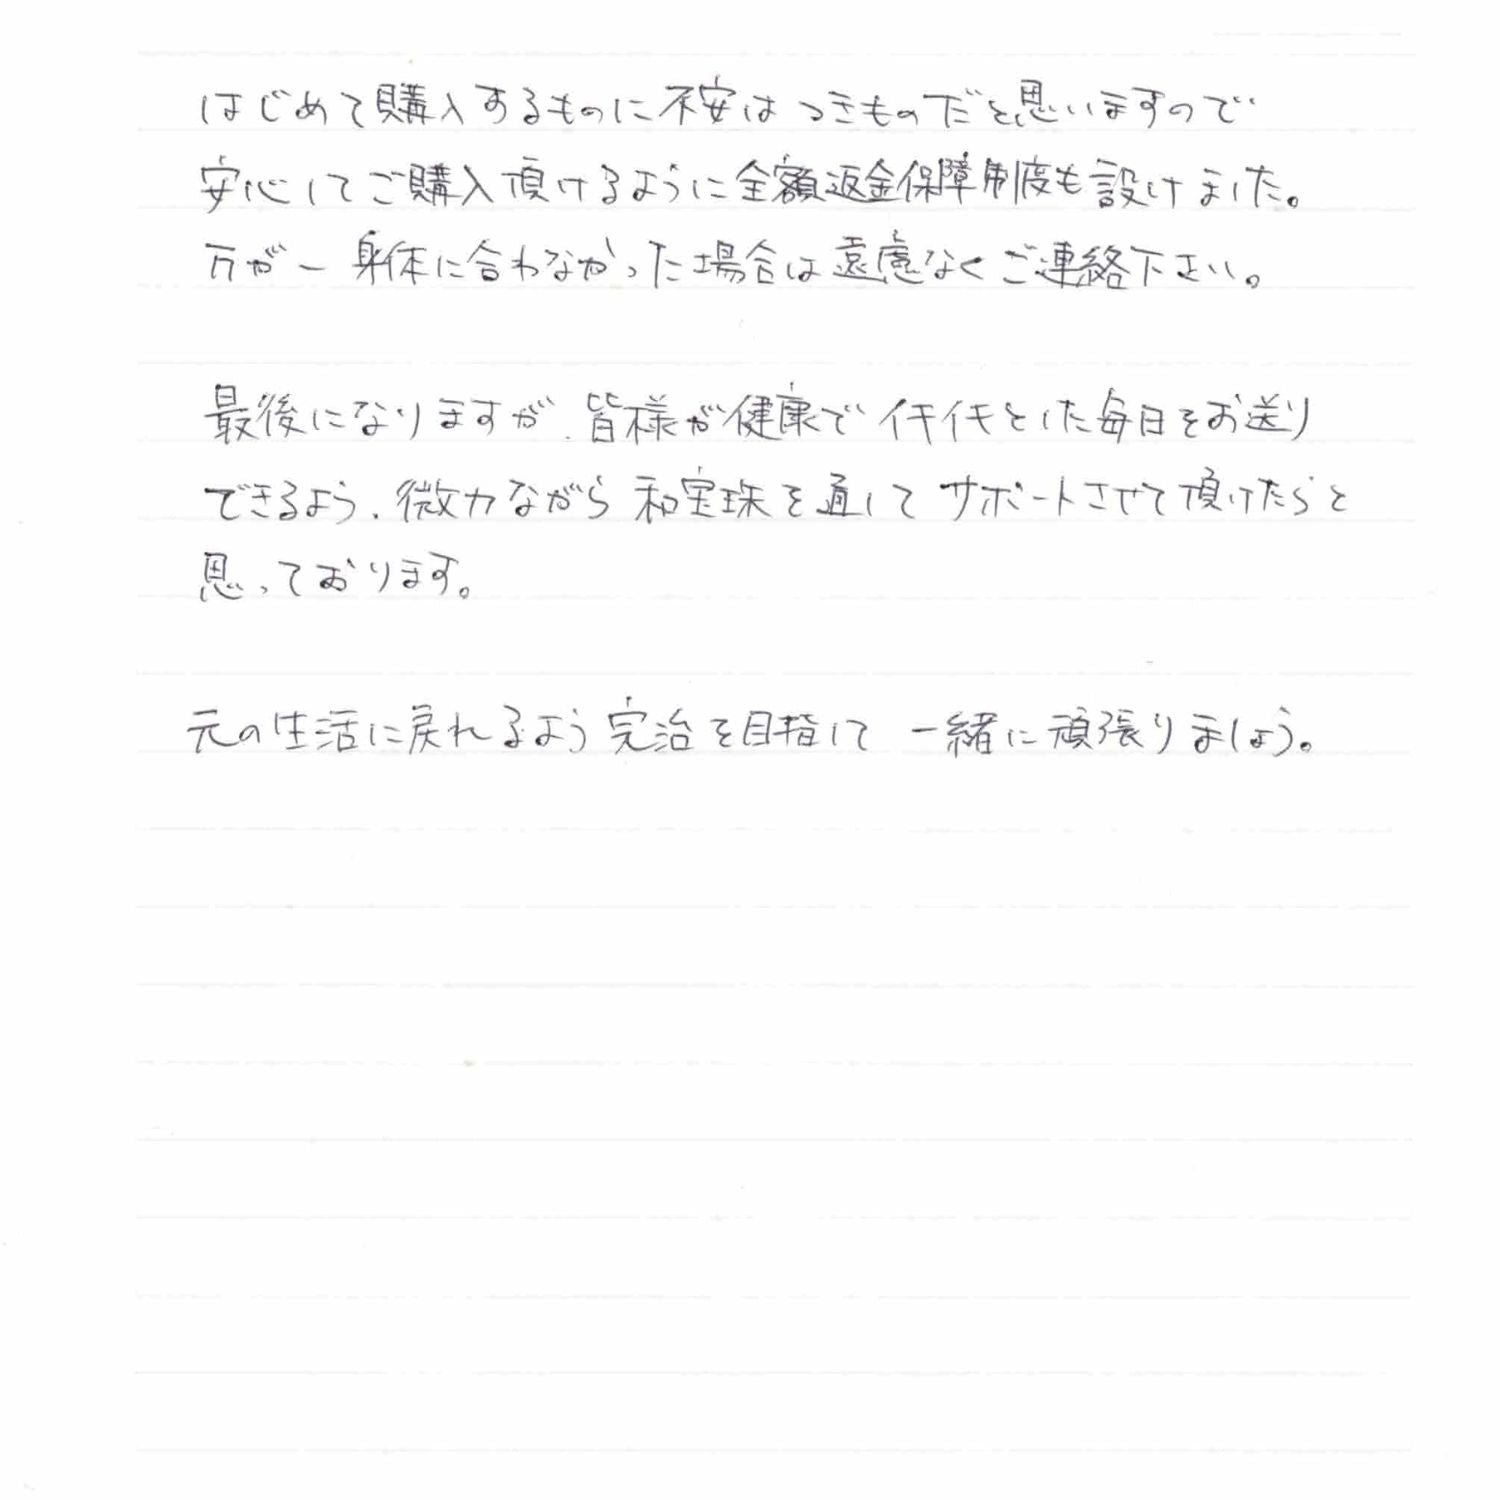 はじめて購入するものに不安はつきものだと思いますので
安心してご購入頂けるように全額返金保障制度も設けました。
万が一身体に合わなかった場合は遠慮なくご連絡下さい。
最後になりますが、皆様が健康でイキイキとした毎日をお送り
できるよう、微力ながら和宝珠を通してサポートさせて頂けたらと
思っております。
元の生活に戻れるよう完治を目指して一緒に頑張りましょう。